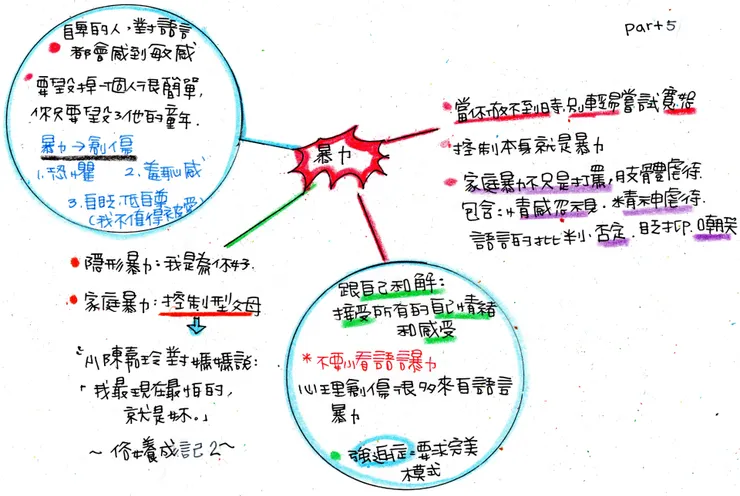 Part 5
自卑的人，對語言
都會感到敏感
要毀掉一個人很簡單，
你只要毀了他的童年.
暴力→創傷
1.恐懼 2.羞恥感
3.自貶、低自尊
(我不值得被愛)
暴力
當你放不到時，別輕易嘗試寬恕
控制本身就是暴力
家庭暴力不只是打罵，肢體虐待.
包含：情感忽視、精神虐待.
語言的批判、否定、貶抑、嘲笑
隱形暴力：我是為你好.
家庭暴力：控制型父母
小陳嘉玲對媽媽說：
「我最現在最怕的，
就是妳。」
～俗女養成記2～
跟自己和解：
接受所有的自己情緒
和感受
*不要小看語言暴力
心理創傷很多來自語言
暴力
強迫症=要求完美
模式